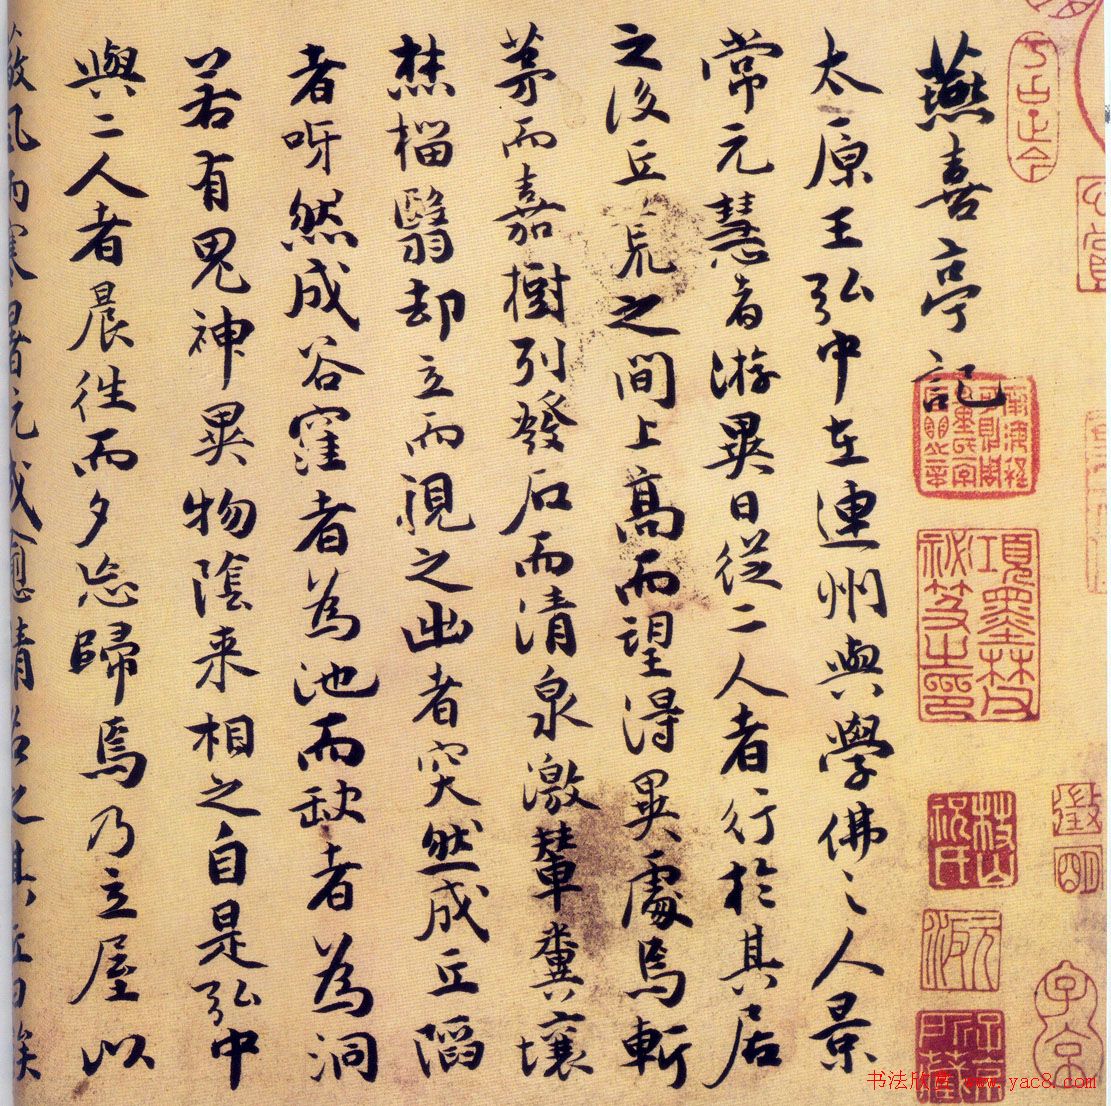 燕喜亭記
太原王弘中在連州與學佛之人景
常元慧者游異日從二人者行於其居
之後丘荒之間上高而望得異處焉斬
茅而嘉樹列發石而清泉激輦糞壤
焚椔翳却立而視之出者突然成丘陷
者呀然成谷窪者為池而缺者為洞
若有鬼神異物陰来相之自是弘中
與二人者晨往而夕忘歸焉乃立屋以
蔽風雨寒暑成愈請名之其丘曰俟
項墨林祕笈之印
枝山
祝氏
徵明
子京
书法欣赏 www.yac8.com